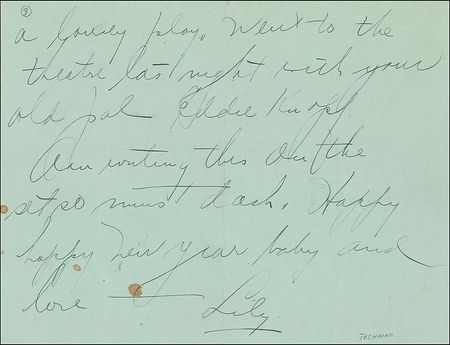 ③
a lovely play. Went to the
theatre last night with your
old pal Eddie Knopf.
Am writing this on the
set, so must dash. Happy
happy New Year baby and
love
Lily
TASHMAN